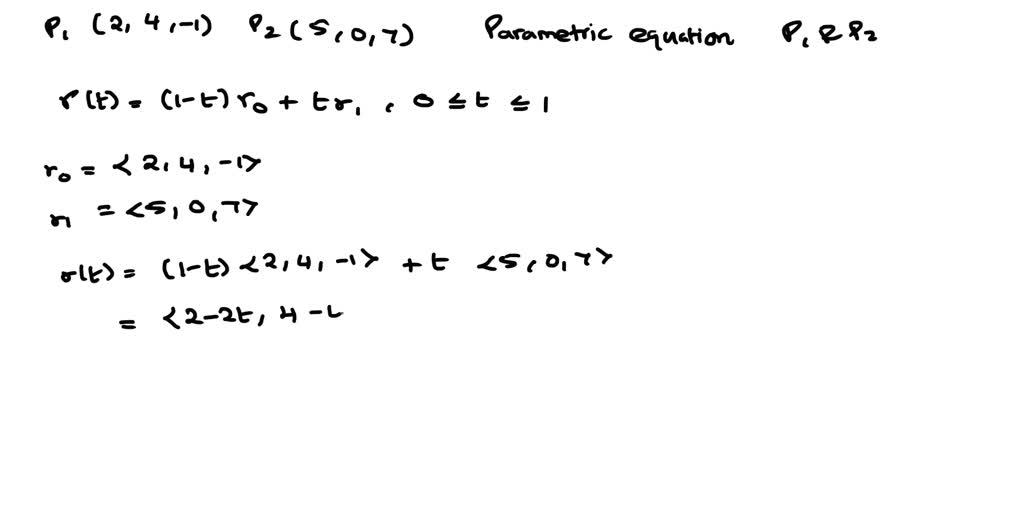 P₁ (2, 4, -1) P₂ (5, 0, 7) Parametric equation P₁ & P₂
r(t) = (1-t) r₀ + t r₁ , 0 ≤ t ≤ 1
r₀ = <2, 4, -1>
r₁ = <5, 0, 7>
r(t) = (1-t) <2, 4, -1> + t <5, 0, 7>
= <2-2t, 4-